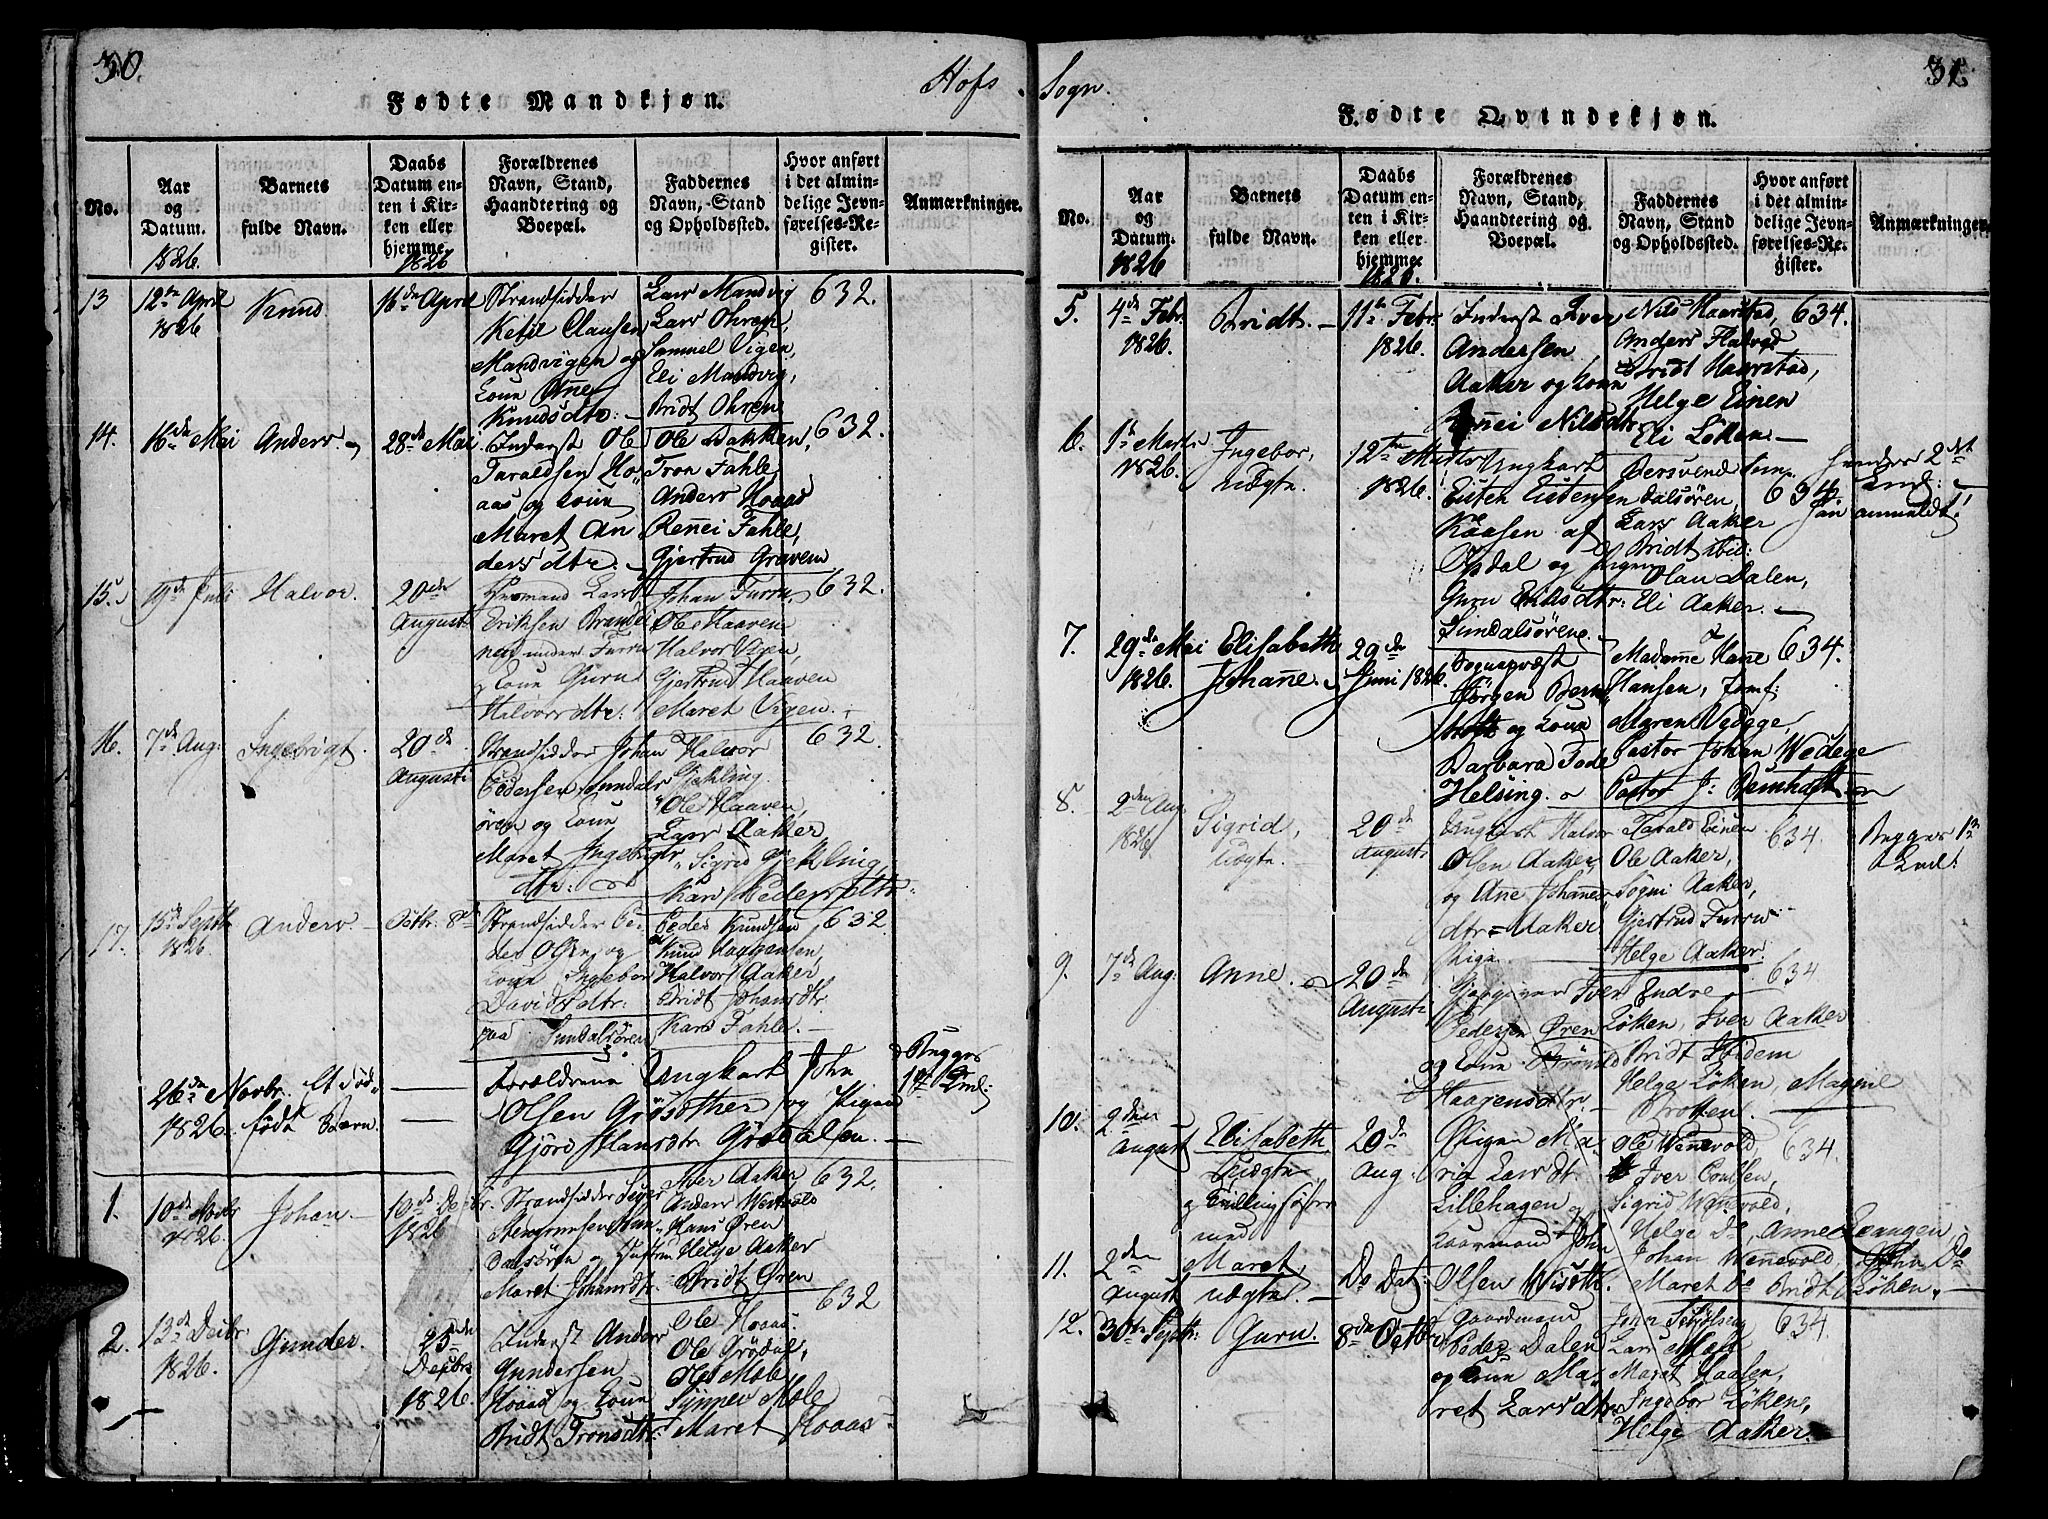 30.
Hofs
Fødte Mandkjøn.
No.
Aar
og
Datum.
1826.
Barnets
fulde Navn.
Daabs
Datum en-
ten i Kir-
ken eller
hjemme.
1826
Forældrenes
Navn, Stand,
Haandtering og
Boepæl.
Faddernes
Navn, Stand
og Opholdssted.
Hvor anført
i det almin-
delige Jevn-
førelses-Re-
gister.
Anmærkninger.
13
12te April
1826
Knud
16de April
Strandsidder
Ketil Clausen
Mandvigen og
Kone Ane
Knudsdtr:
Lars Mandvig
Lars Ohren,
Samuel Vigen,
Eli Mandvig,
Bridt Ohren
632.
14.
16de Mai
Anders
28de Mai
Inderst Ole
Taraldsen Ho-
aas og Kone
Maret An
dersdtr.
Ole Bakken,
Tron Fahle
Anders Hoaas
Rennei Fahle,
Gjertrud Gravem
632.
15.
19de Juli
Halvor.
20de
August
Huusmand Lars
Eriksen
under Furru
og Kone Guru
Halvorsdtr.
Johan Furru,
Ole Haaven
Halvor Vigen,
Gjertrud Haaven
Maret Vigen.
632.
16.
7de Aug:
Ingebrigt.
20de
Augusti
Strandsidder Johan
Pedersen Sundals
ören og Kone
Maret Ingebrigts
dtr:
Halvor
Gjekling
Ole Haaven,
Lars Aaker
Sigrid Gjekling,
Kari Pedersdtr:
632.
17.
15de Septb.
1826.
Anders
Octbr. 8de
Strandsidder Pe-
der Olsen og
Kone Ingebor
Davidsdtr:
paa Sundalsören
Peder Knudsen
Knud Haagensen,
Halvor Aaker
Bridt Johansdtr.
Kari Fahle.
632.
26de Novbr.
1826.
Et död-
födt Barn.
Forældrene Ungkarl John
Olsen Grösether og Pigen
Gjöro Hansdtr. Grödalen.
Begges
1st Leml:
1.
10de Novbr
1826.
Johan.
10de Decbr.
1826
Strandsidder
Sun-
dalsören og Hustru
Maret Johansdtr.
Iver Aaker
Anders Wennevold
Hans Øren
Helge Aaker
Bridt Øren
632.
2.
13de Decbr.
1826.
Gunder.
25de
Decbr.
1826
Inderst Anders
Gundersen
Hoaas og Kone
Bridt Tronsdtr.
Ole Hoaas.
Ole Grödal,
Ole Mæle
Synnev Mæle
Maret Hoaas
632
Sogn.
31.
Fødte Qvindekjøn.
No.
Aar
og
Datum.
1826
Barnets
fulde Navn.
Daabs
Datum en-
ten i Kir-
ken eller
hjemme
1826.
Forældrenes
Navn, Stand,
Haandtering og
Boepæl.
Faddernes
Navn, Stand
og Opholdssted.
Hvor anført
i det almin-
delige Jevn-
førelses-Re-
gister.
Anmærkninger.
5.
4de Febr.
1826.
Bridt.
11te Febr.
1826.
Inderst Iver
Andersen
Aaker og Kone
Rennei Nilsdtr.
Nils Haarstad,
Anders Flatvad
Bridt Haarstad,
Helge Einen
Eli Löken.
634.
6.
1ste Marts
1826.
Ingebor,
uægte.
12te Marts
1826.
Ungkarl
Esten Estensen
Kaasen af
Opdal og Pigen
Guru Eriksdtr:
Sundalsören.
Bersvend
Dalsören,
Lars Aaker
Bridt ibid:
Olau Dalen,
Eli Aaker.
634.
hendes 2det
Leml:
anmeldt!
7.
29de Mai
1826.
Elisabeth
Johanne.
29de
Juni 1826.
Sognepræst
Jörgen Bern
hoft og Kone
Barbara Tode
Helsing.
Madamme Hane
Hansen, Jomf:
Maren Wedege,
Pastor Johan Wedege
Pastor J: Bernhoft
634.
8.
2den Aug
1826.
Sigrid,
uægte.
20de
Augusti
Ungkarl Halvor
Olsen Aaker,
og Ane Johannes
dtr = Aaker
Pige
Tarald Einen
Ole Aaker,
Sogni Aaker,
Gjertrud Furru
Helge Aaker.
634.
Begges 1ste
Leml:
9.
7de Aug:
Anne.
20de
Augusti
Iver
Pedersen Øren
og Kone
Haagensdtr.
Endre
Löken, Iver Aaker
Bridt Hoidem
Helge Löken, Magnil
Brotten.
634
10.
2den
August
Elisabeth
Uægte
og Tvillingsöster
med
20de
Aug:
Pigen Ma-
ria Larsdtr.
Lillehagen og
Gaardmand John
Ole Wenevold,
Iver Poulsen,
Sigrid Wenevold,
Helge Do, Anne Evangen,
634.
11.
2den
August
Maret,
uægte.
Do Dat:
Olsen Wisöth.
Johan Wennevold, John Do
Maret Do Bridt Löken.
12.
30te Septb:
Guru.
8de Octbr
Gaardmand
Peder Dalen
og Kone Ma-
ret Larsdtr.
John
Lars Mæle
Maret Kaasen,
Ingebor Löken,
Helge Aaker.
634.